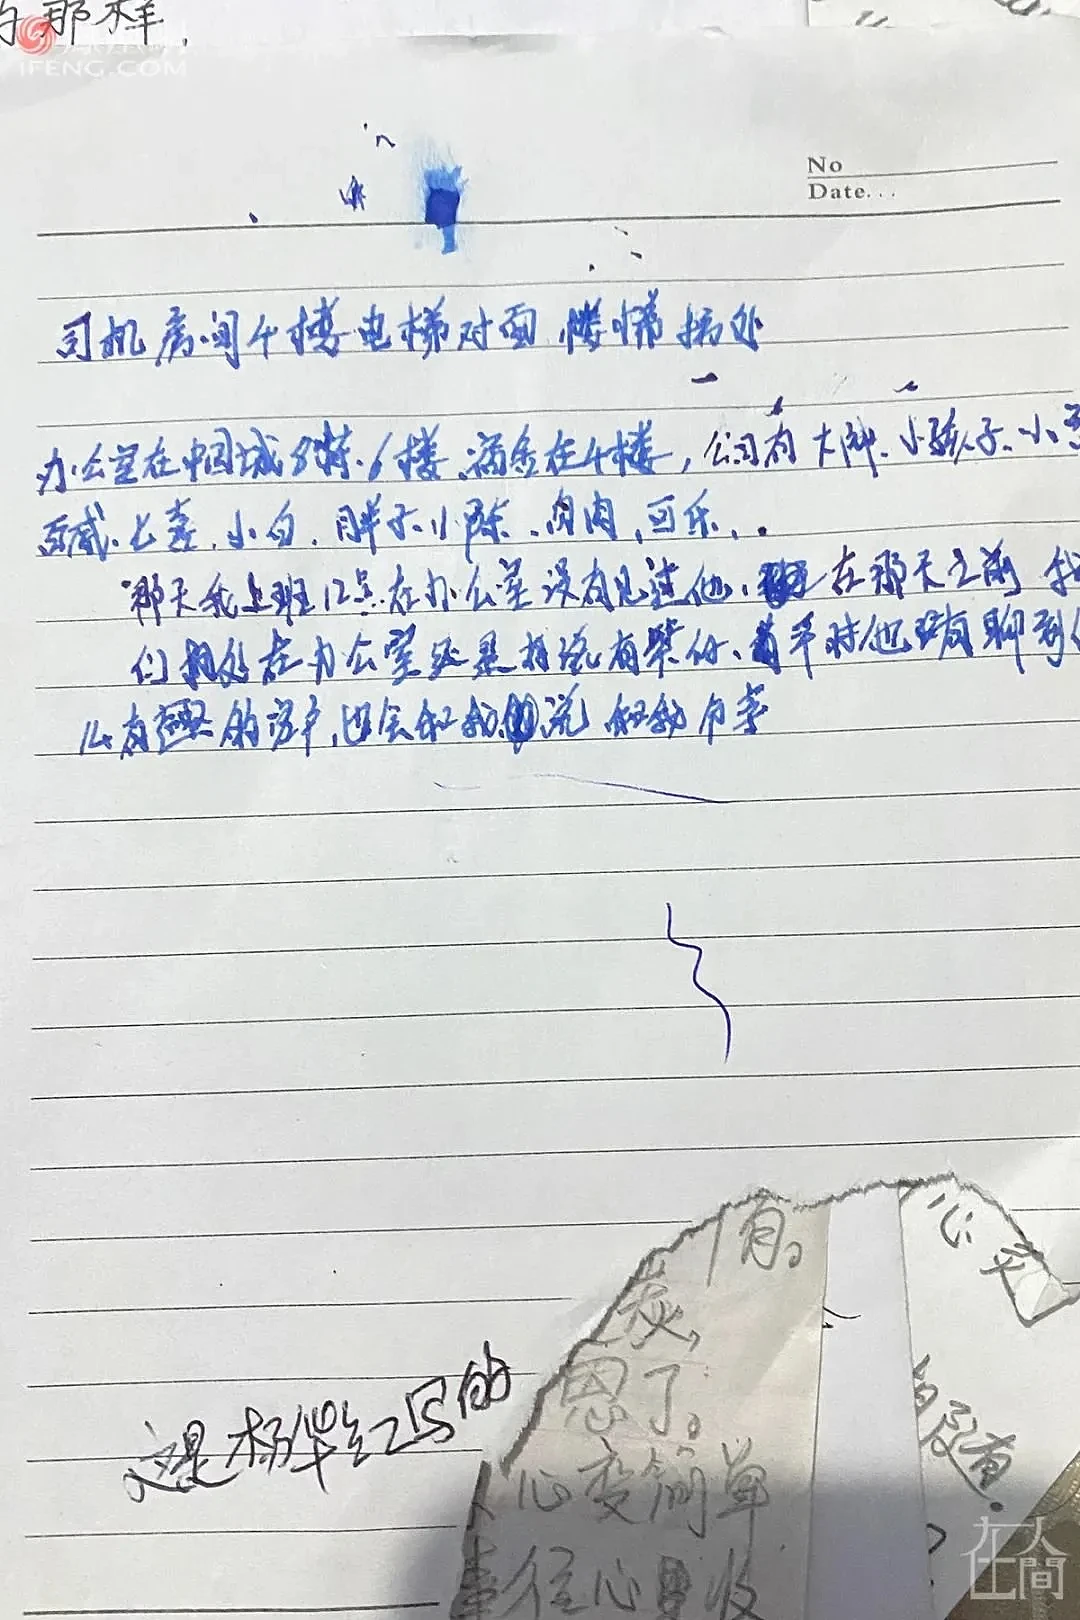 的那样,
IFENG.COM
No
Date...
司机房间4楼电梯对面,楼梯拐处
办公室在中国城8栋6楼,宿舍在4楼,公司有大帅、小孩子、小
七喜、小白、胖子、小陈、肉肉、可乐、.
那天我上班12点在办公室没有见过他、在那天之前
们相处在办公室还是挺有、平时他有聊到
么有趣的客户,也会和我说和我
有。
心灵
灰,
恩了。
这是杨华红写的
人心变简单
事往心里收
在人間